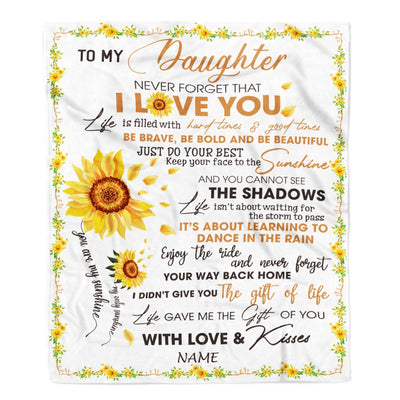 TO MY Daughter
NEVER FORGET THAT
I LOVE YOU
Life is filled with hard times & good times
BE BRAVE, BE BOLD AND BE BEAUTIFUL
JUST DO YOUR BEST
Keep your face to the Sunshine
AND YOU CANNOT SEE
THE SHADOWS
Life isn't about waiting for
the storm to pass
IT'S ABOUT LEARNING TO
DANCE IN THE RAIN
Enjoy the ride
and never forget
YOUR WAY BACK HOME
I DIDN'T GIVE YOU The gift of life
Life GAVE ME THE Gift OF YOU
WITH LOVE & Kisses
NAME
you are my sunshine
my only sunshine